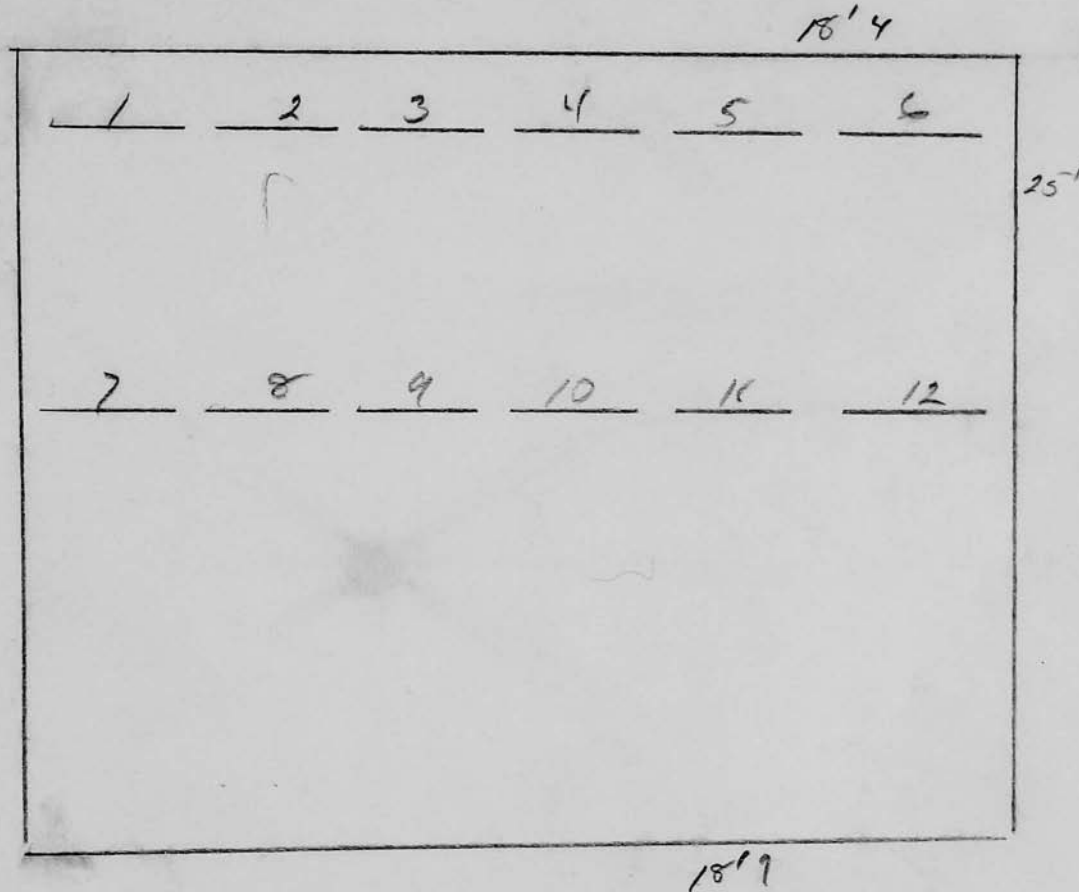 18'4
1 2 3 4 5 6
25'
7 8 9 10 11 12
18'9